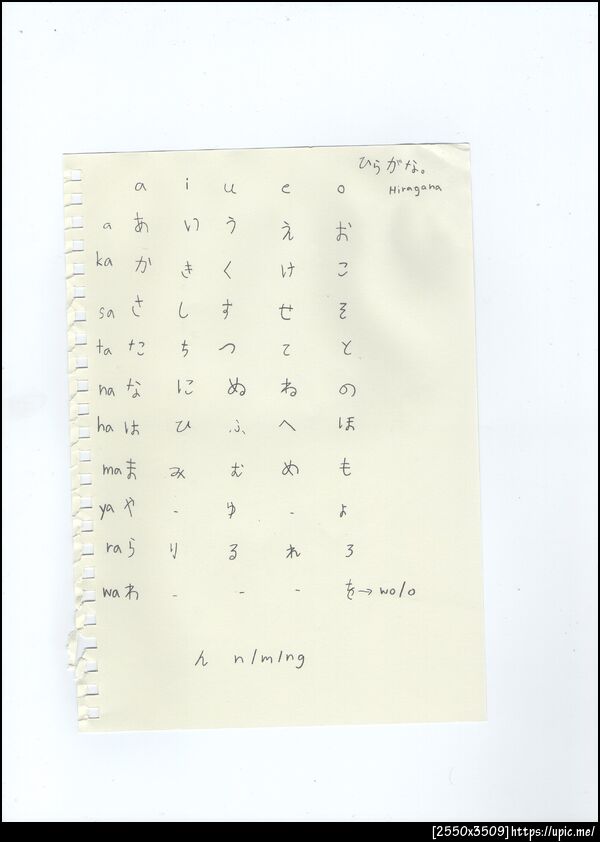 ひらがな。
Hiragana
a i u e o
a あ い う え お
ka か き く け こ
sa さ し す せ そ
ta た ち つ て と
na な に ぬ ね の
ha は ひ ふ へ ほ
ma ま み む め も
ya や - ゆ - よ
ra ら り る れ ろ
wa わ - - - を→ wo/o
ん n/m/ng
[2550x3509]https://upic.me/